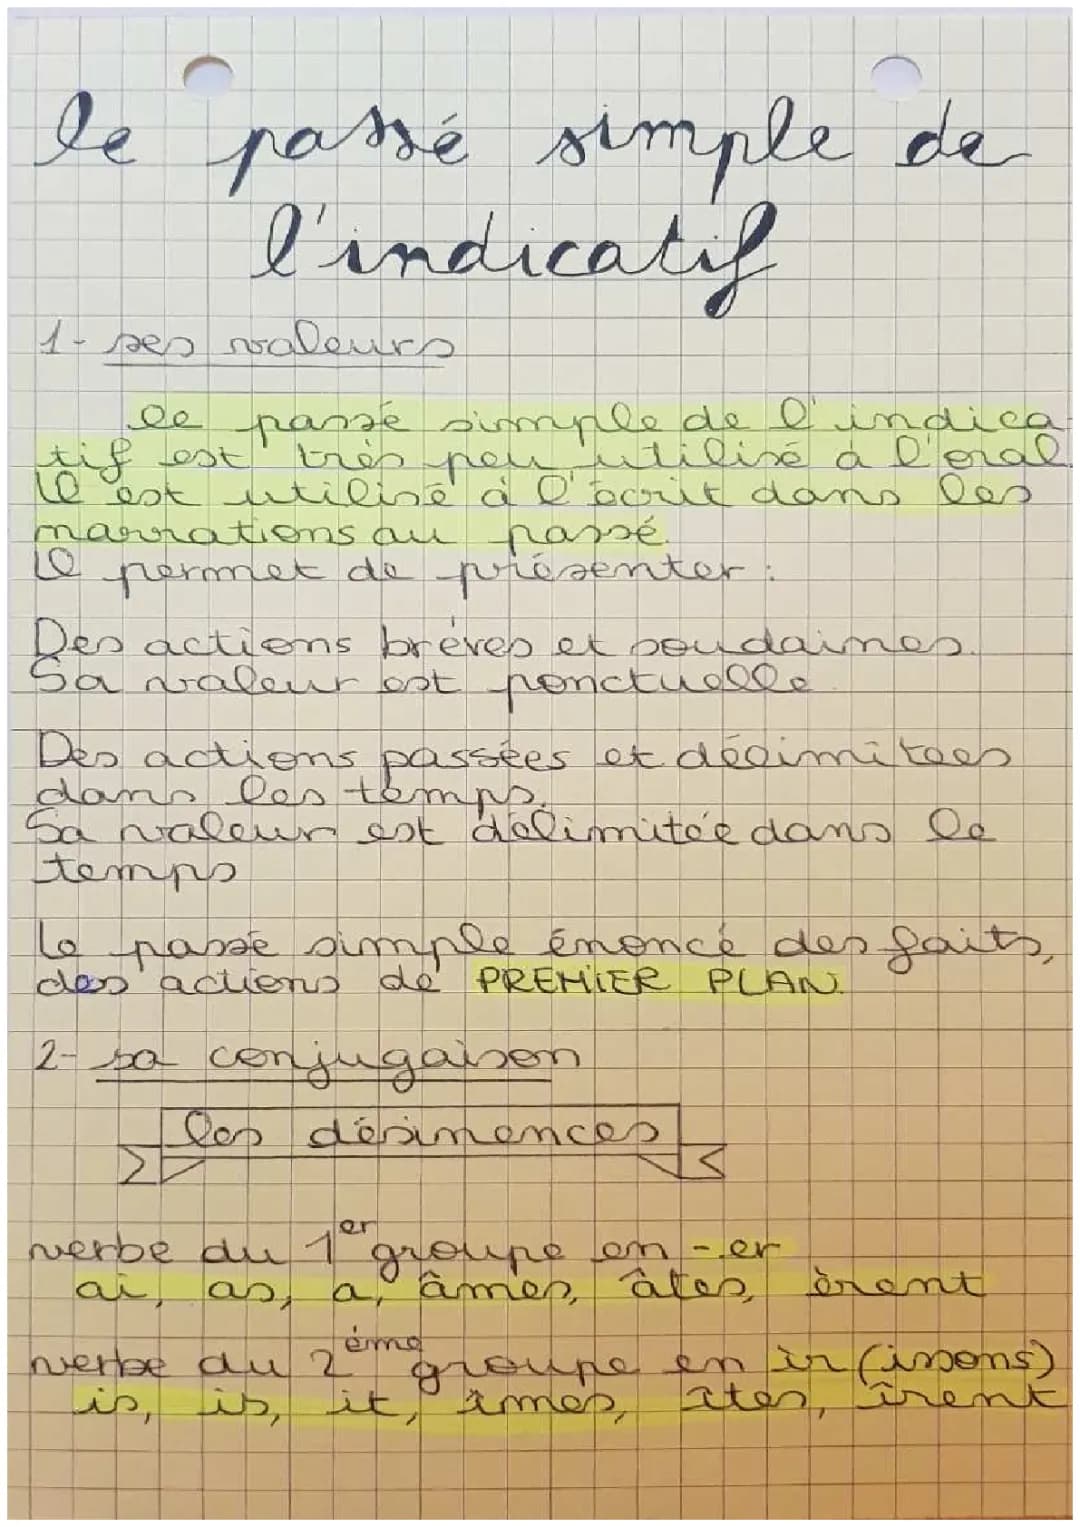 le passé simple de
l'indicatif
1- ses valeurs
le passé simple de l'indica
tif est très peu utilisé à l'oral.
Il est utilisé à l'écrit dans les
narrations au passé.
Il permet de présenter :
Des actions brèves et soudaines.
Sa valeur est ponctuelle.
Des actions passées et délimitées
dans les temps.
Sa valeur est délimitée dans le
temps
Le passé simple énoncé des faits,
des actions de PREMIER PLAN.
2- sa conjugaison
les désinences
verbe du 1er groupe en -er
ai, as, a, âmes, âtes, èrent
verbe du 2ème groupe en ir (issons)
is, is, it, îmes, îtes, îrent